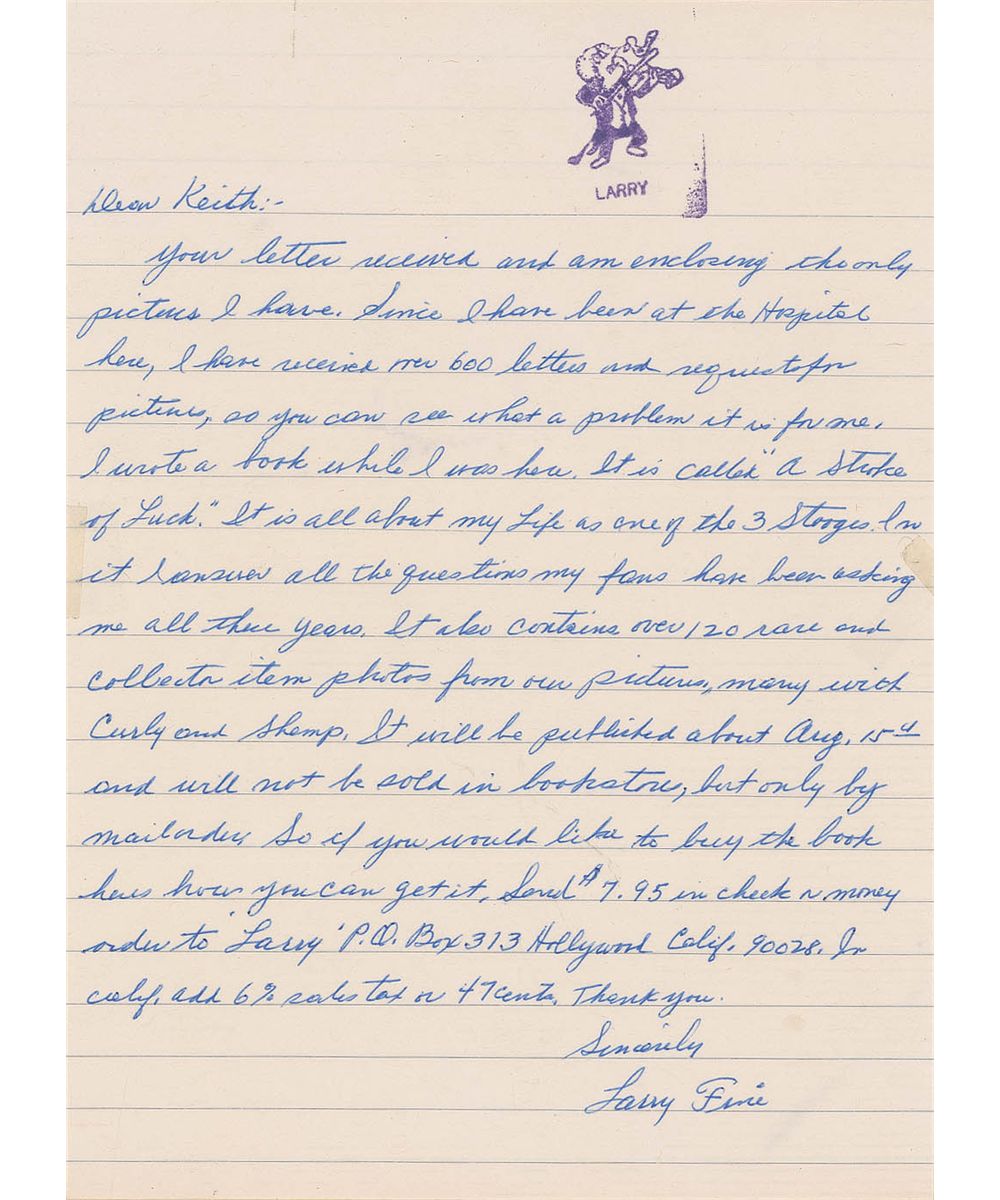 LARRY
Dear Keith:-
Your letter received and am enclosing the only
picture I have. Since I have been at the Hospital
here, I have received over 600 letters and requests for
pictures, so you can see what a problem it is for me.
I wrote a book while I was here. It is called "A Stroke
of Luck." It is all about my Life as one of the 3 Stooges. In
it I answer all the questions my fans have been asking
me all these years. It also contains over 120 rare and
collector item photos from our pictures, many with
Curly and Shemp. It will be published about Aug. 15th
and will not be sold in bookstores, but only by
mailorder. So if you would like to buy the book
heres how you can get it. Send $7.95 in check or money
order to 'Larry' P.O. Box 313 Hollywood Calif. 90028. In
calif. add 6% sales tax or 47 cents. Thank you.
Sincerely
Larry Fine